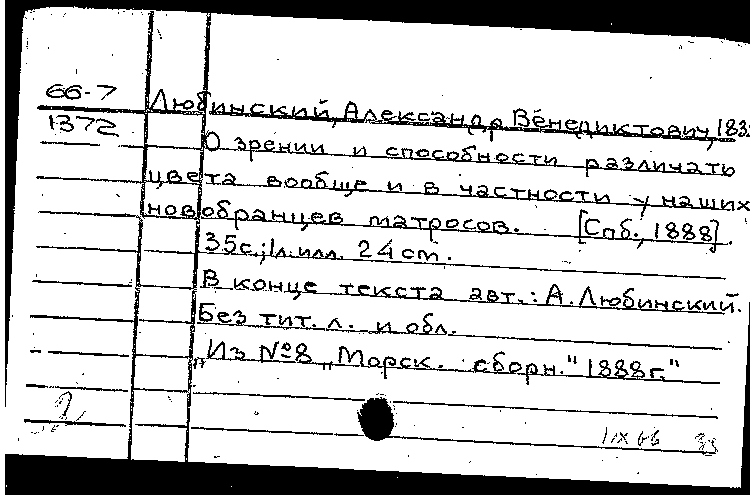 66-7
Любинский, Александр Венедиктович, 183
1372
О зрении и способности различать
цвета вообще и в частности у наших
новобранцев матросов. [Спб., 1888].
35с.; 1л. илл. 24 cm.
В конце текста авт.: А. Любинский.
Без тит. л. и обл.
"Из №8 "Морск. сборн." 1888г."
1 IX 66